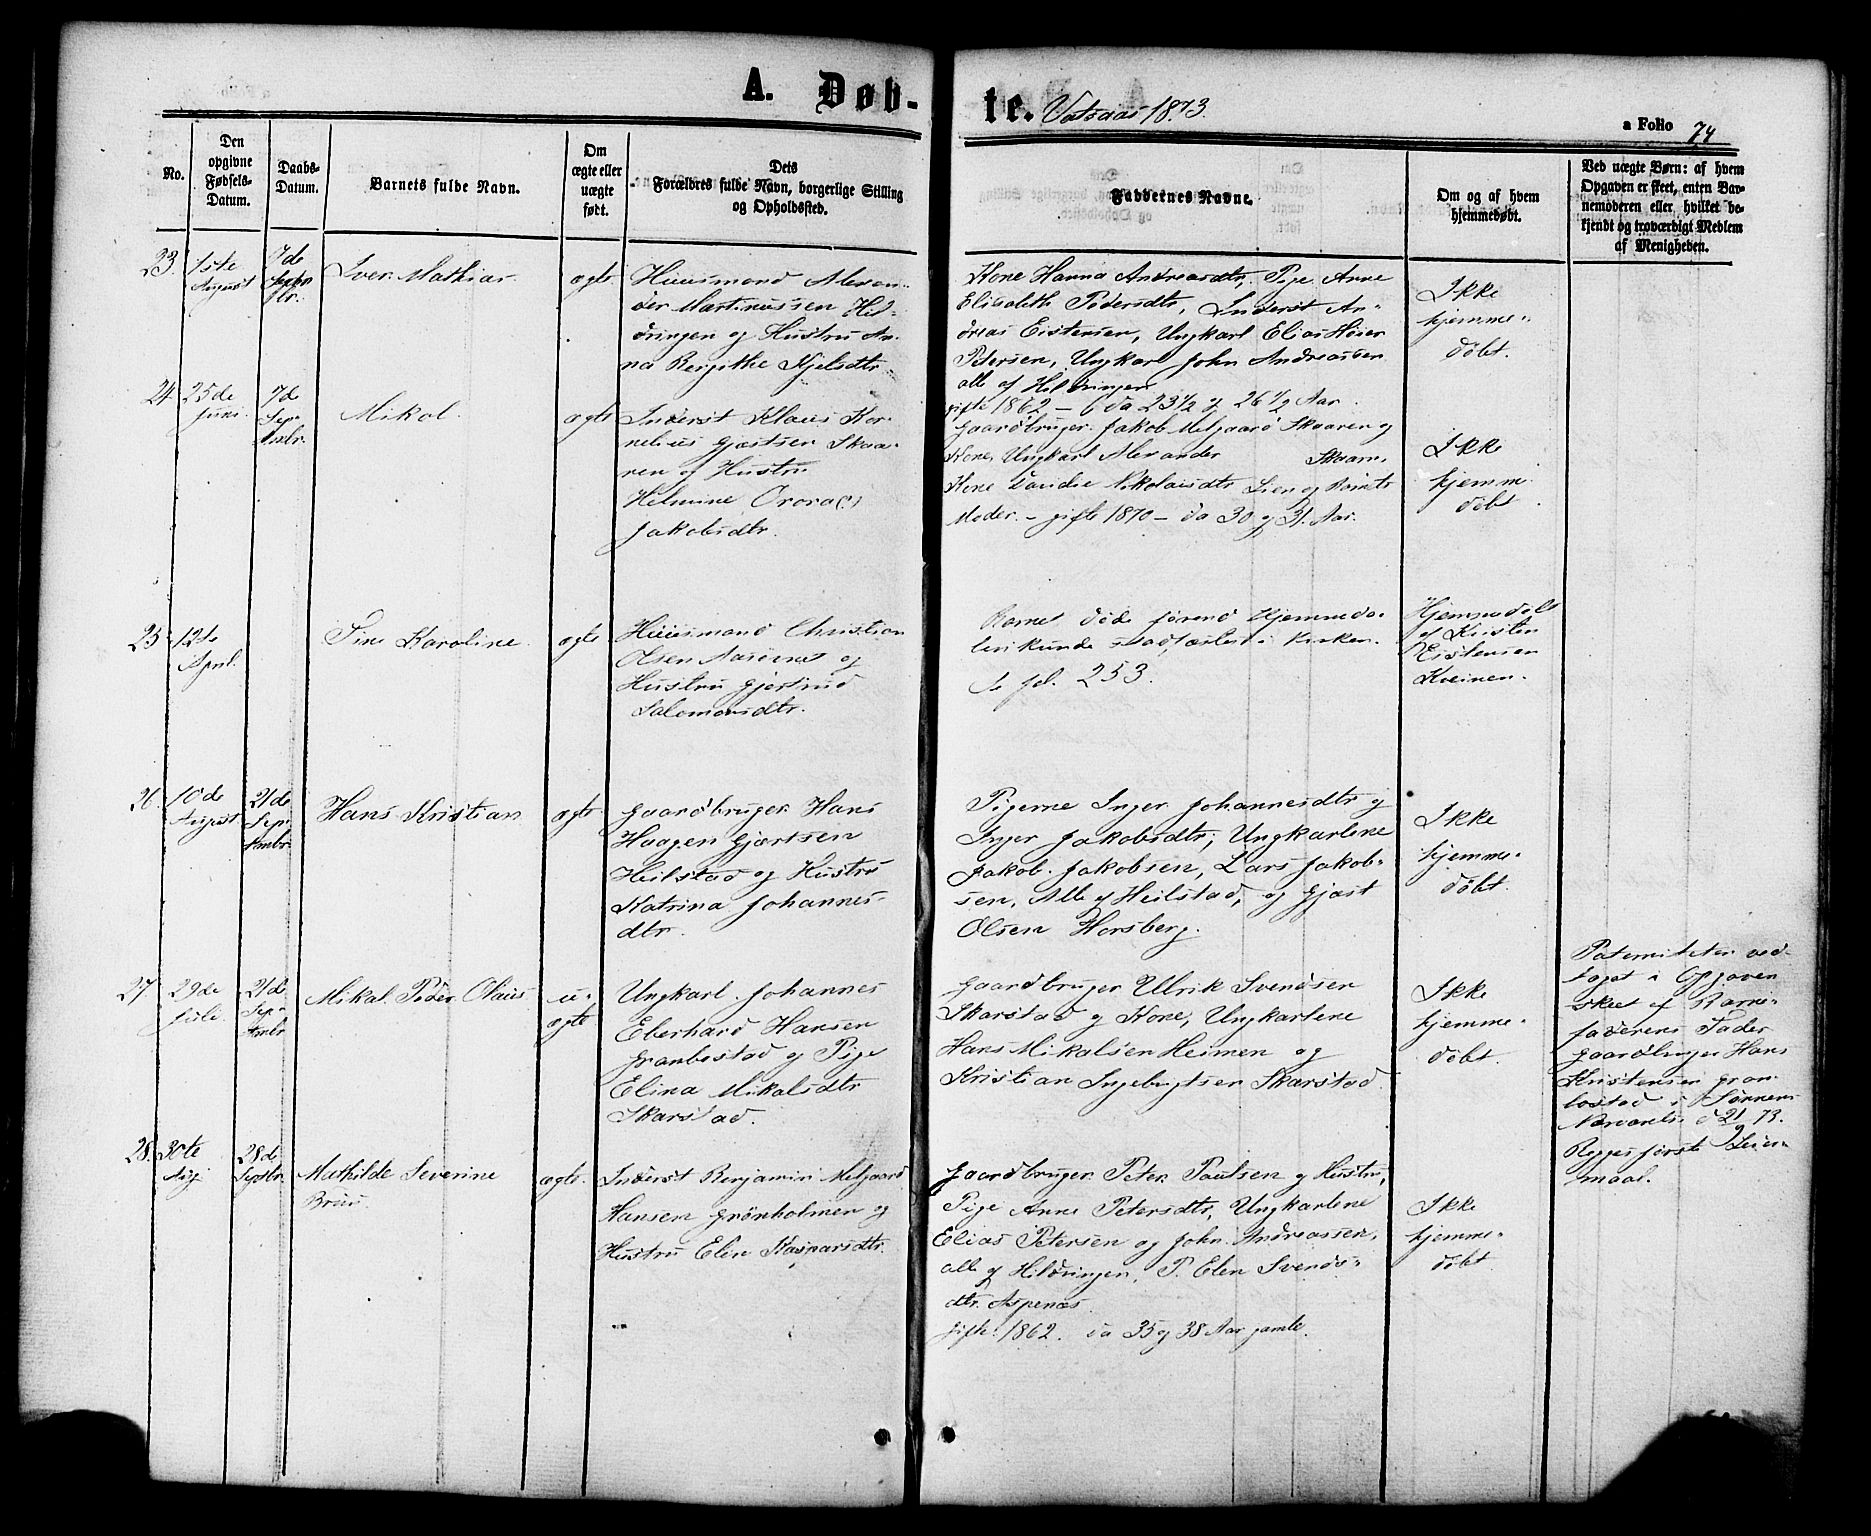 A. Døb-
te. Vatsaas 1873.
a Folio 74
No.
Den
opgivne
Fødsels-
Datum.
Daabs-
Datum.
Barnets fulde Navn.
Om
ægte eller
uægte
født.
Dets
Forældres fulde Navn, borgerlige Stilling
og Opholdssted.
Faddernes Navne.
Om og af hvem
hjemmedøbt.
Ved uægte Børn: af hvem
Opgaven er skeet, enten Bar-
nemoderen eller hvilket be-
kjendt og troværdigt Medlem
af Menigheden.
23.
1ste
August
7de
Septbr.
Iver Mathias
ægte
Huusmand Alexan-
der Martinussen Hil-
dringen og Hustru An-
na Bergithe Kjelsdtr
Kone Hanna Andreasdtr, Pige Anne
Elisabeth Pedersdtr, Inderst An-
dreas Eistensen, Ungkarl Elias Høier
Petersen, Ungkarl John Andreassen
alle af Hildringen
gifte 1862 - 6 da 23 1/2 og 26 1/2 Aar.
Ikke
hjemme-
døbt.
24
25de
Juni
7d
Sep-
tembr.
Mikal
ægte
Inderst Klaus Kor-
nelius Gjærtsen Skaa-
ren og Hustru
Helmine Orora(?)
Jakobsdtr.
Gaardbruger Jakob Melgaard Skaaren og
Kone, Ungkarl Alexander Skaarn,
Kone Davidie Nikolaisdtr Lien og Barnets
Moder. - gifte 1870 - da 30 og 31 Aar.
Ikke
hjemm.
døbt
25
12te
April.
Tine Karoline.
ægte
Huusmand Christian
Olsen Aasørnes og
Hustru Gjertrud
Salomonsdtr.
Barnet døde førend Hjemmedaa-
ben kunde stadfæstes i Kirken.
Se fol. 253.
Hjemmedøbt
af Kristen
Eistensen
Kveinen.
26.
10de
August
21de
Sep-
tembr.
Hans Kristian
ægte
Gaardbruger Hans
Haagen Gjærtsen
Heilstad og Hustru
Katrina Johannes-
dtr.
Pigerne Inger Johannesdtr og
Inger Jakobsdtr, Ungkarlene
Jakob Jakobsen, Lars Jakob-
sen, Alle af Heilstad, og Gjært
Olsen Horsberg.
Ikke
hjemme-
døbt.
27
29de
Juli.
21de
Sep-
tembr
Mikal Peder Olaus
u-
ægte
Ungkarl Johannes
Eberhard Hansen
Granbostad og Pige
Elina Mikalsdtr
Skarstad.
Gaardbruger Ulrik Svendsen
Skarstad og Kone, Ungkarlene
Hans Mikalsen Heimen og
Kristian Ingebrigtsen Skarstad.
Ikke
hjemme-
døbt.
Paterniteten ved-
taget i Opgaven
skeet af Barne-
faderens Fader
Gaardbruger Hans
Kristensen Gran-
bostad i Sønnens
Nærværelse d 21/9 73.
Begges første Leier-
maal.
28.
30te
Aug
28de
Septbr.
Mathilde Severine
Bruu
ægte.
Inderst Benjamin Melgaard
Hansen Grønholmen og
Hustru Elen Kasparsdtr.
Gaardbruger Peter Paulsen og Hustru,
Pige Anne Petersdtr, Ungkarlene
Elias Petersen og John Andreassen,
alle af Hildringen, P. Elen Svends-
dtr Aspenæs.
gifte 1862. da 35 og 38 Aar gamle.
Ikke
hjemme-
døbt.